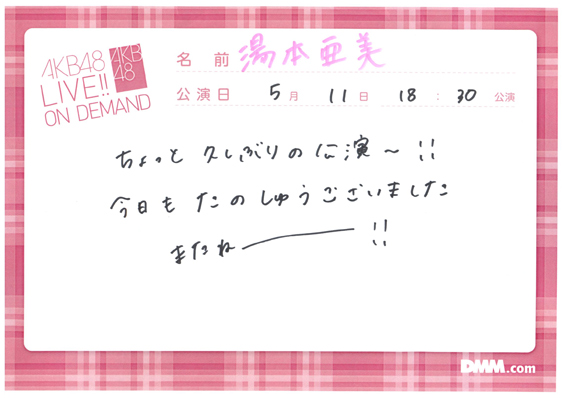 AKB48
LIVE!!
ON DEMAND
AKB
48
名前 湯本亜美
公演日 5月 11日 18:30 公演
ちょっと久しぶりの公演～!!
今日もたのしゅうございました
またねー!!
DMM.com